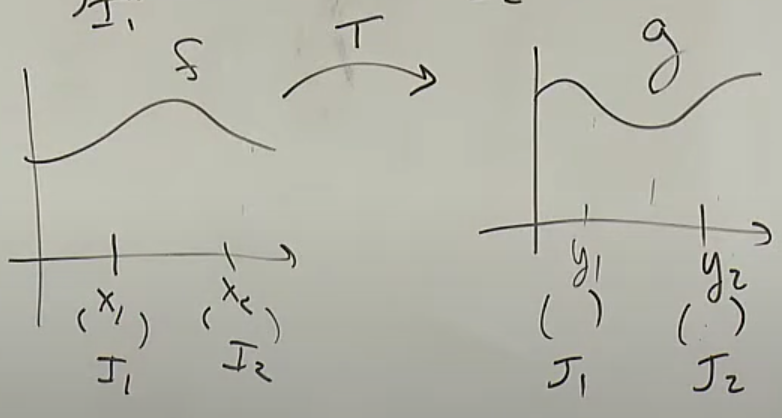 I₁
f T g
x₁ x₂ y₁ y₂
( ) ( ) ( ) ( )
I₁ I₂ J₁ J₂